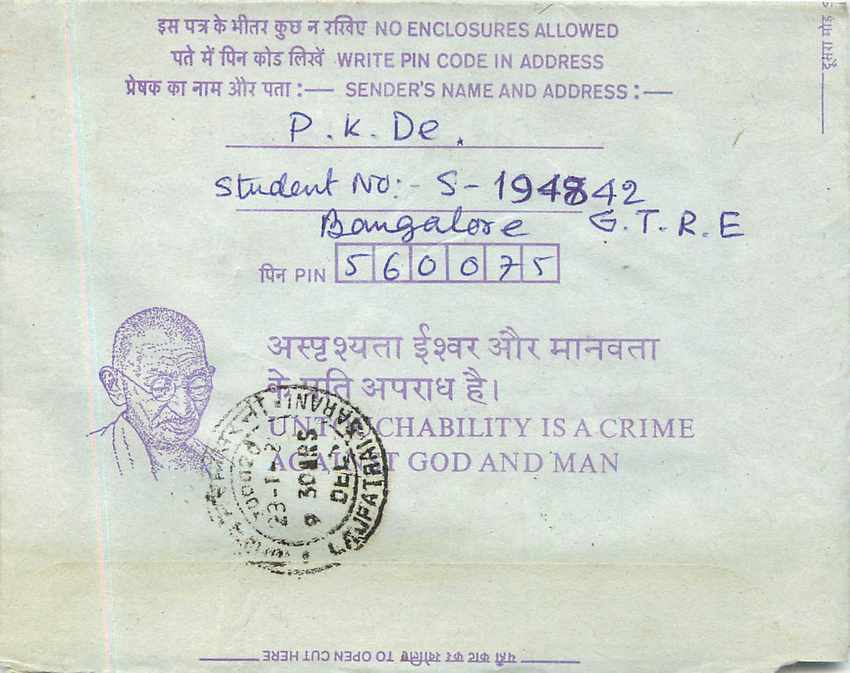 इस पत्र के भीतर कुछ न रखिए NO ENCLOSURES ALLOWED
पते में पिन कोड लिखें WRITE PIN CODE IN ADDRESS
प्रेषक का नाम और पता :— SENDER'S NAME AND ADDRESS :—
P. K. De.
Student No:- S-194842
Bangalore G.T.R.E
पिन PIN 560075
अस्पृश्यता ईश्वर और मानवता
के प्रति अपराध है।
UNTOUCHABILITY IS A CRIME
AGAINST GOD AND MAN
LAJPATRAI SARANI
700020
9 30HRS
DEE
यहाँ काट कर खोलिए TO OPEN CUT HERE
दूसरा मोड़